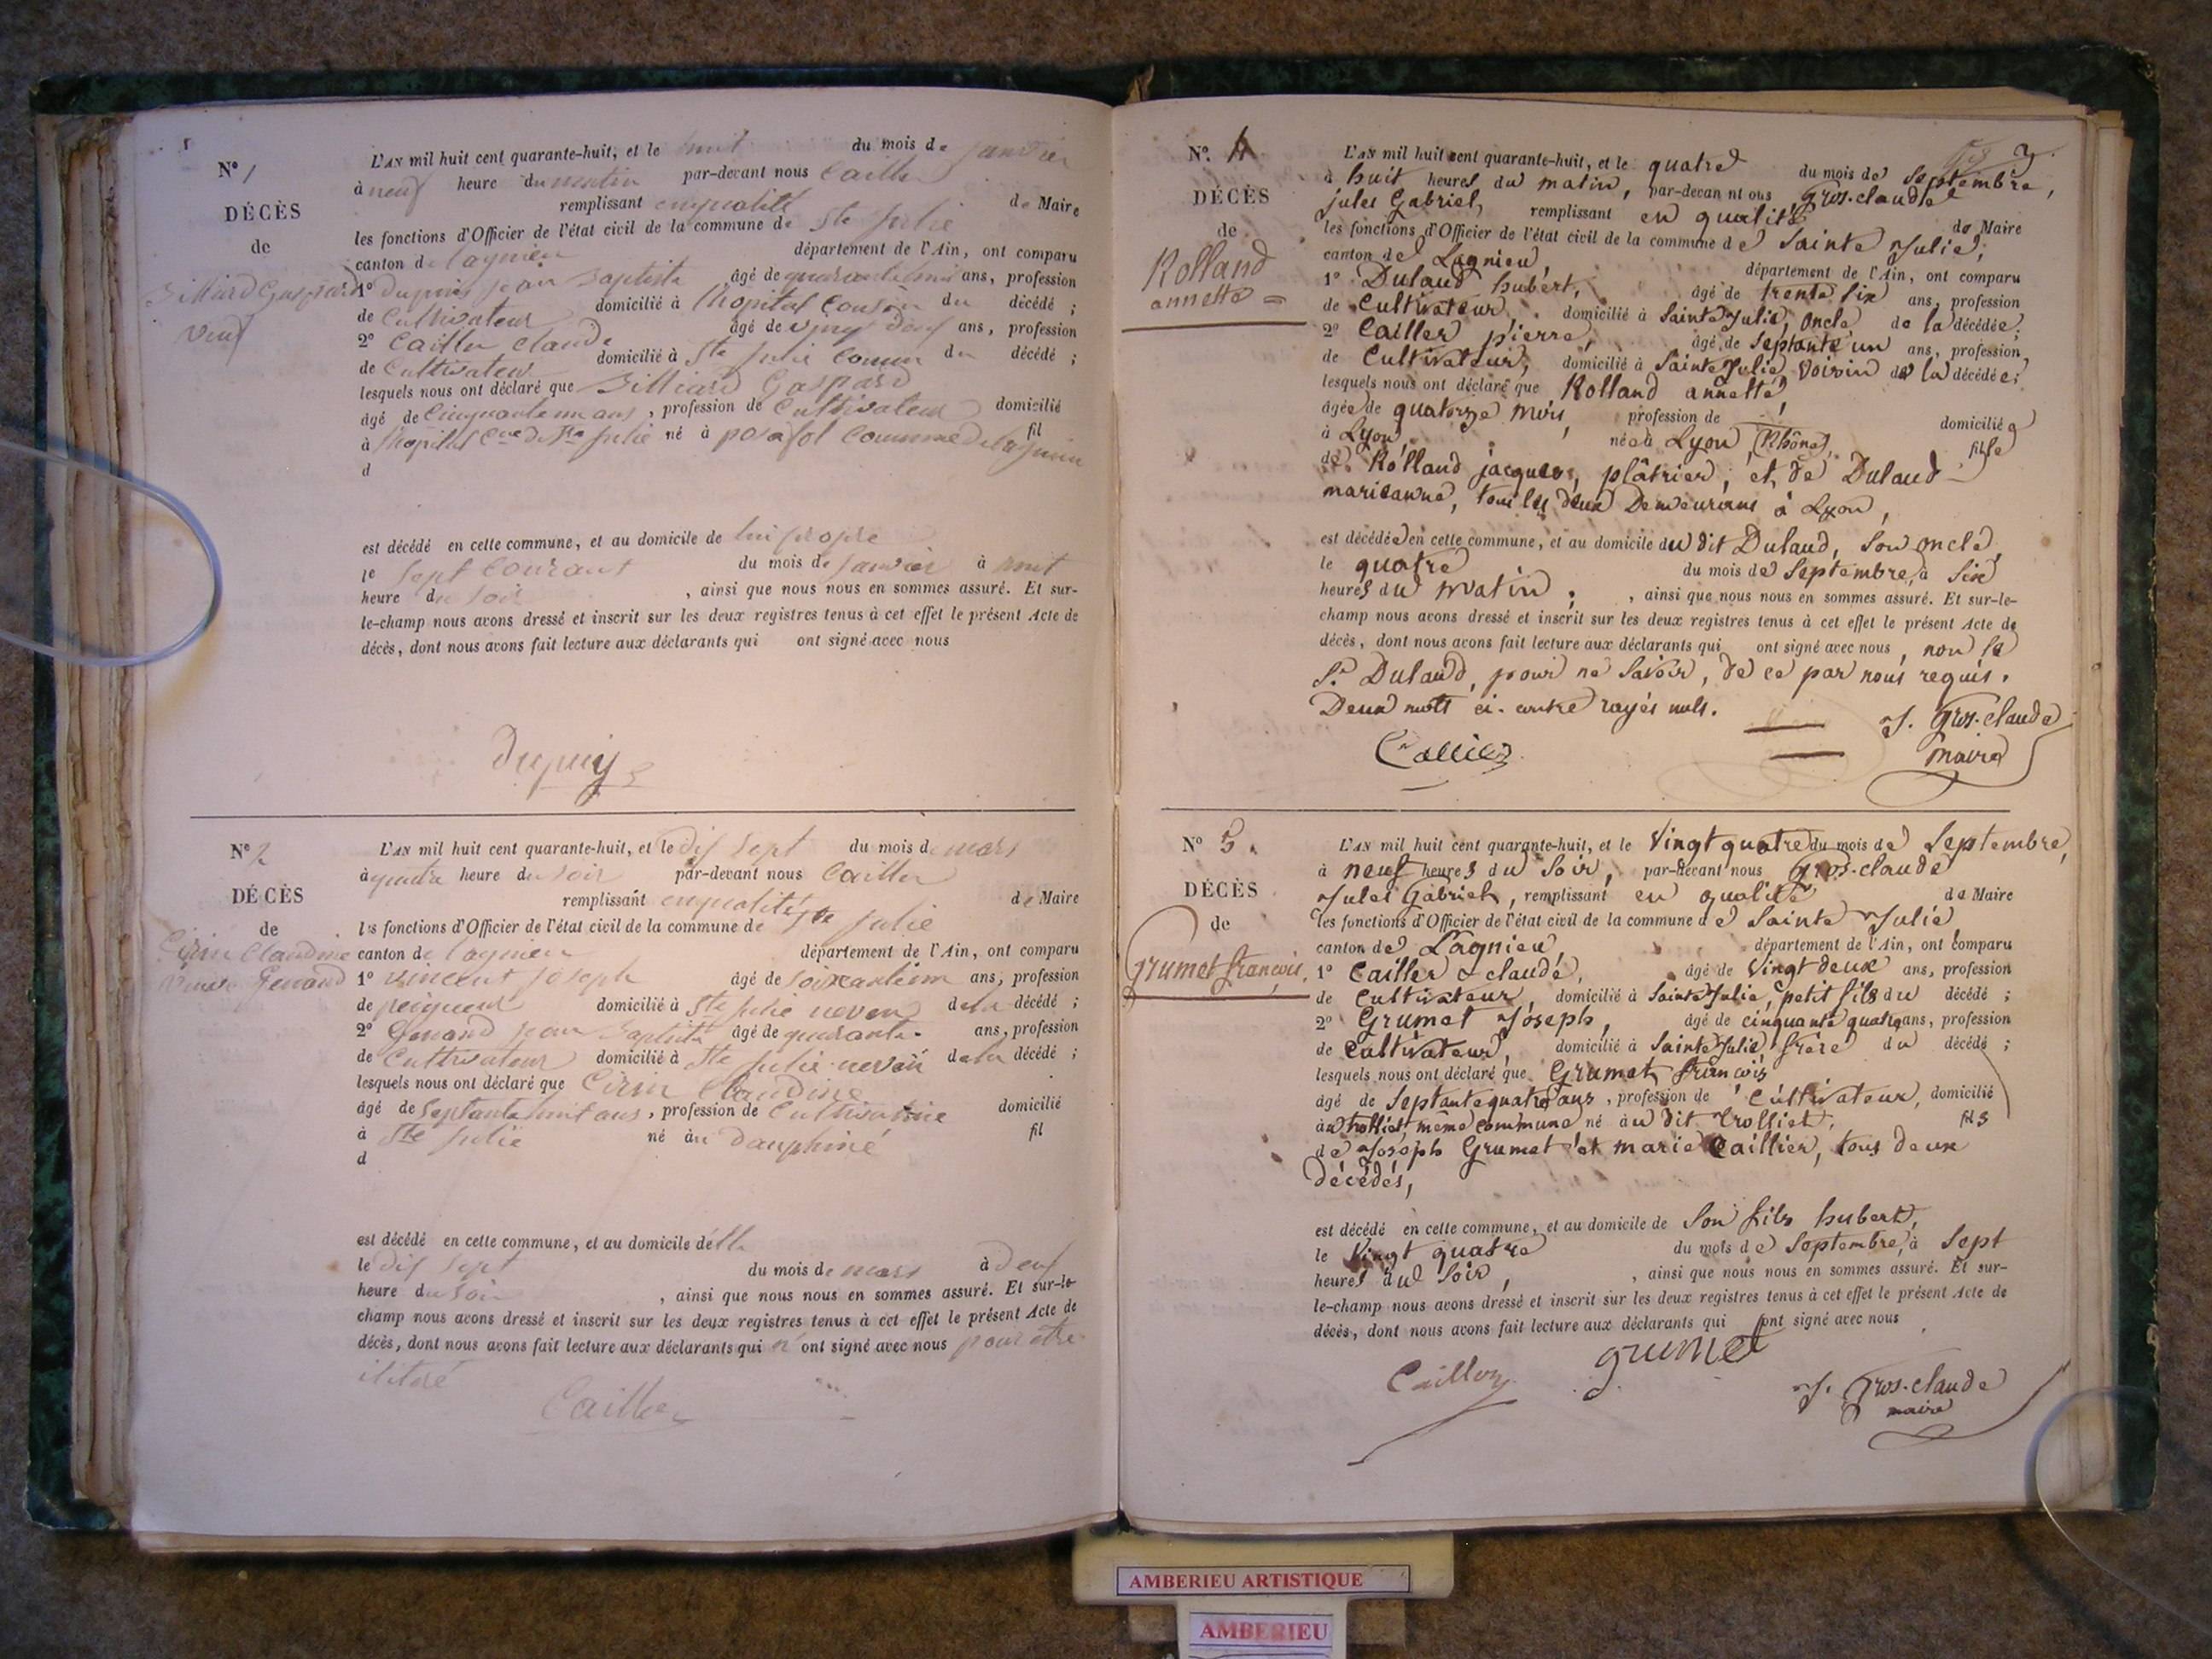 N° 1
DÉCÈS
de
Billiard Gaspard
veuf
L'AN mil huit cent quarante-huit, et le huit du mois de janvier
à neuf heure du matin par-devant nous Cailler
remplissant en qualité de Maire
les fonctions d'Officier de l'état civil de la commune de Ste Julie
canton de lagnieu département de l'Ain, ont comparu
1° Dupuis jean Baptiste âgé de quarante huit ans, profession
de Cultivateur domicilié à l'hopital Cousin du décédé ;
2° Cailler Claude âgé de vingt deux ans, profession
de Cultivateur domicilié à Ste Julie Cousin du décédé ;
lesquels nous ont déclaré que Billiard Gaspard
âgé de Cinquante un ans, profession de Cultivateur domicilié
à l'hopital Cne de Ste Julie né à posafol Commune de lagnieu fil
d
est décédé en cette commune, et au domicile de lui propre
le Sept Courant du mois de janvier à huit
heure du Soir , ainsi que nous nous en sommes assuré. Et sur-
le-champ nous avons dressé et inscrit sur les deux registres tenus à cet effet le présent Acte de
décès, dont nous avons fait lecture aux déclarants qui ont signé avec nous
Dupuis
N° 2
DÉCÈS
de
Cirin Claudine
veuve Genand
L'AN mil huit cent quarante-huit, et le dix Sept du mois de mars
à quatre heure du soir par-devant nous Cailler
remplissant en qualité de Maire
les fonctions d'Officier de l'état civil de la commune de Ste Julie
canton de lagnieu département de l'Ain, ont comparu
1° Vincent Joseph âgé de soixante un ans, profession
de peigneur domicilié à Ste Julie neveu de la décédé ;
2° Genand jean Baptiste âgé de quarante ans, profession
de Cultivateur domicilié à Ste Julie neveu de la décédé ;
lesquels nous ont déclaré que Cirin Claudine
âgé de Septante huit ans, profession de Cultivatrice domicilié
à Ste Julie né àu Dauphiné fil
d
est décédé en cette commune, et au domicile délle
le dix Sept du mois de mars à deux
heure du soir , ainsi que nous nous en sommes assuré. Et sur-le-
champ nous avons dressé et inscrit sur les deux registres tenus à cet effet le présent Acte de
décès, dont nous avons fait lecture aux déclarants qui n'ont signé avec nous pour être
ilitéré
Cailler
3.
N°. 4
DÉCÈS
de
Rolland
annette =
L'AN mil huit cent quarante-huit, et le quatre du mois de Septembre,
à huit heures du matin, par-devan nt ous Gros-claude
jules Gabriel, remplissant en qualité de Maire
les fonctions d'Officier de l'état civil de la commune de Sainte Julie,
canton de Lagnieu, département de l'Ain, ont comparu
1° Dulaud hubert, âgé de trente Six ans, profession
de Cultivateur, domicilié à Sainte Julie, oncle de la décédée;
2° Cailler pierre, âgé de Septante un ans, profession
de Cultivateur, domicilié à Sainte Julie, Voisin de la décédée;
lesquels nous ont déclaré que Rolland annette,
âgée de quatorze mois, profession de — , domiciliée
à Lyon, née à Lyon (Rhône), fille
de Rolland jacques, plâtrier, et de Dulaud
marieanne, tous les deux Demeurans à Lyon,
est décédée en cette commune, et au domicile du dit Dulaud, Son oncle,
le quatre du mois de Septembre, à Six
heures du matin, , ainsi que nous nous en sommes assuré. Et sur-le-
champ nous avons dressé et inscrit sur les deux registres tenus à cet effet le présent Acte de
décès, dont nous avons fait lecture aux déclarants qui ont signé avec nous, non le
Sr. Dulaud, pour ne Savoir, de ce par nous requis.
Deux mots ci-contre rayés nuls.
J. Gros-claude
Cailler maire
N° 5.
DÉCÈS
de
Grumet françois.
L'AN mil huit cent quarante-huit, et le Vingt quatre du mois de Septembre,
à neuf heures du Soir, par-devant nous Gros-claude
Jules Gabriel, remplissant en qualité de Maire
les fonctions d'Officier de l'état civil de la commune de Sainte Julie
canton de Lagnieu, département de l'Ain, ont comparu
1° Cailler claude, âgé de Vingt deux ans, profession
de Cultivateur, domicilié à Sainte Julie, petit fils du décédé ;
2° Grumet Joseph, âgé de cinquante quatre ans, profession
de Cultivateur, domicilié à Sainte Julie, frère du décédé ;
lesquels nous ont déclaré que Grumet françois
âgé de Septante quatre ans, profession de Cultivateur, domicilié
àu trolliet, même commune né àu dit Trolliet, fils
de Joseph Grumet et marie Caillier, tous deux
décédés,
est décédé en cette commune, et au domicile de Son fils hubert,
le Vingt quatre du mois de Septembre, à Sept
heures du Soir, , ainsi que nous nous en sommes assuré. Et sur-
le-champ nous avons dressé et inscrit sur les deux registres tenus à cet effet le présent Acte de
décès, dont nous avons fait lecture aux déclarants qui ont signé avec nous
Cailler grumet
J. Gros-claude
maire
AMBERIEU ARTISTIQUE
AMBERIEU